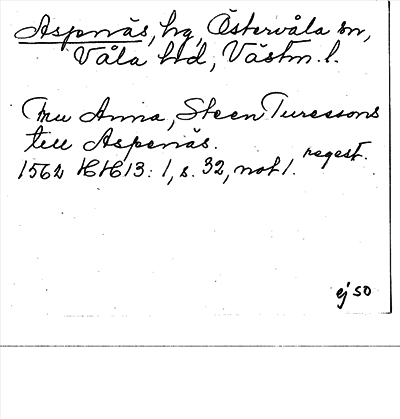 Aspenäs, hg, Östervåla sn,
Våla hd, Västm. l.
Mu Anna, Steen Turessons
till Aspenäs.
1562 HH 13: 1, s. 32, not 1. regest.
ej SO